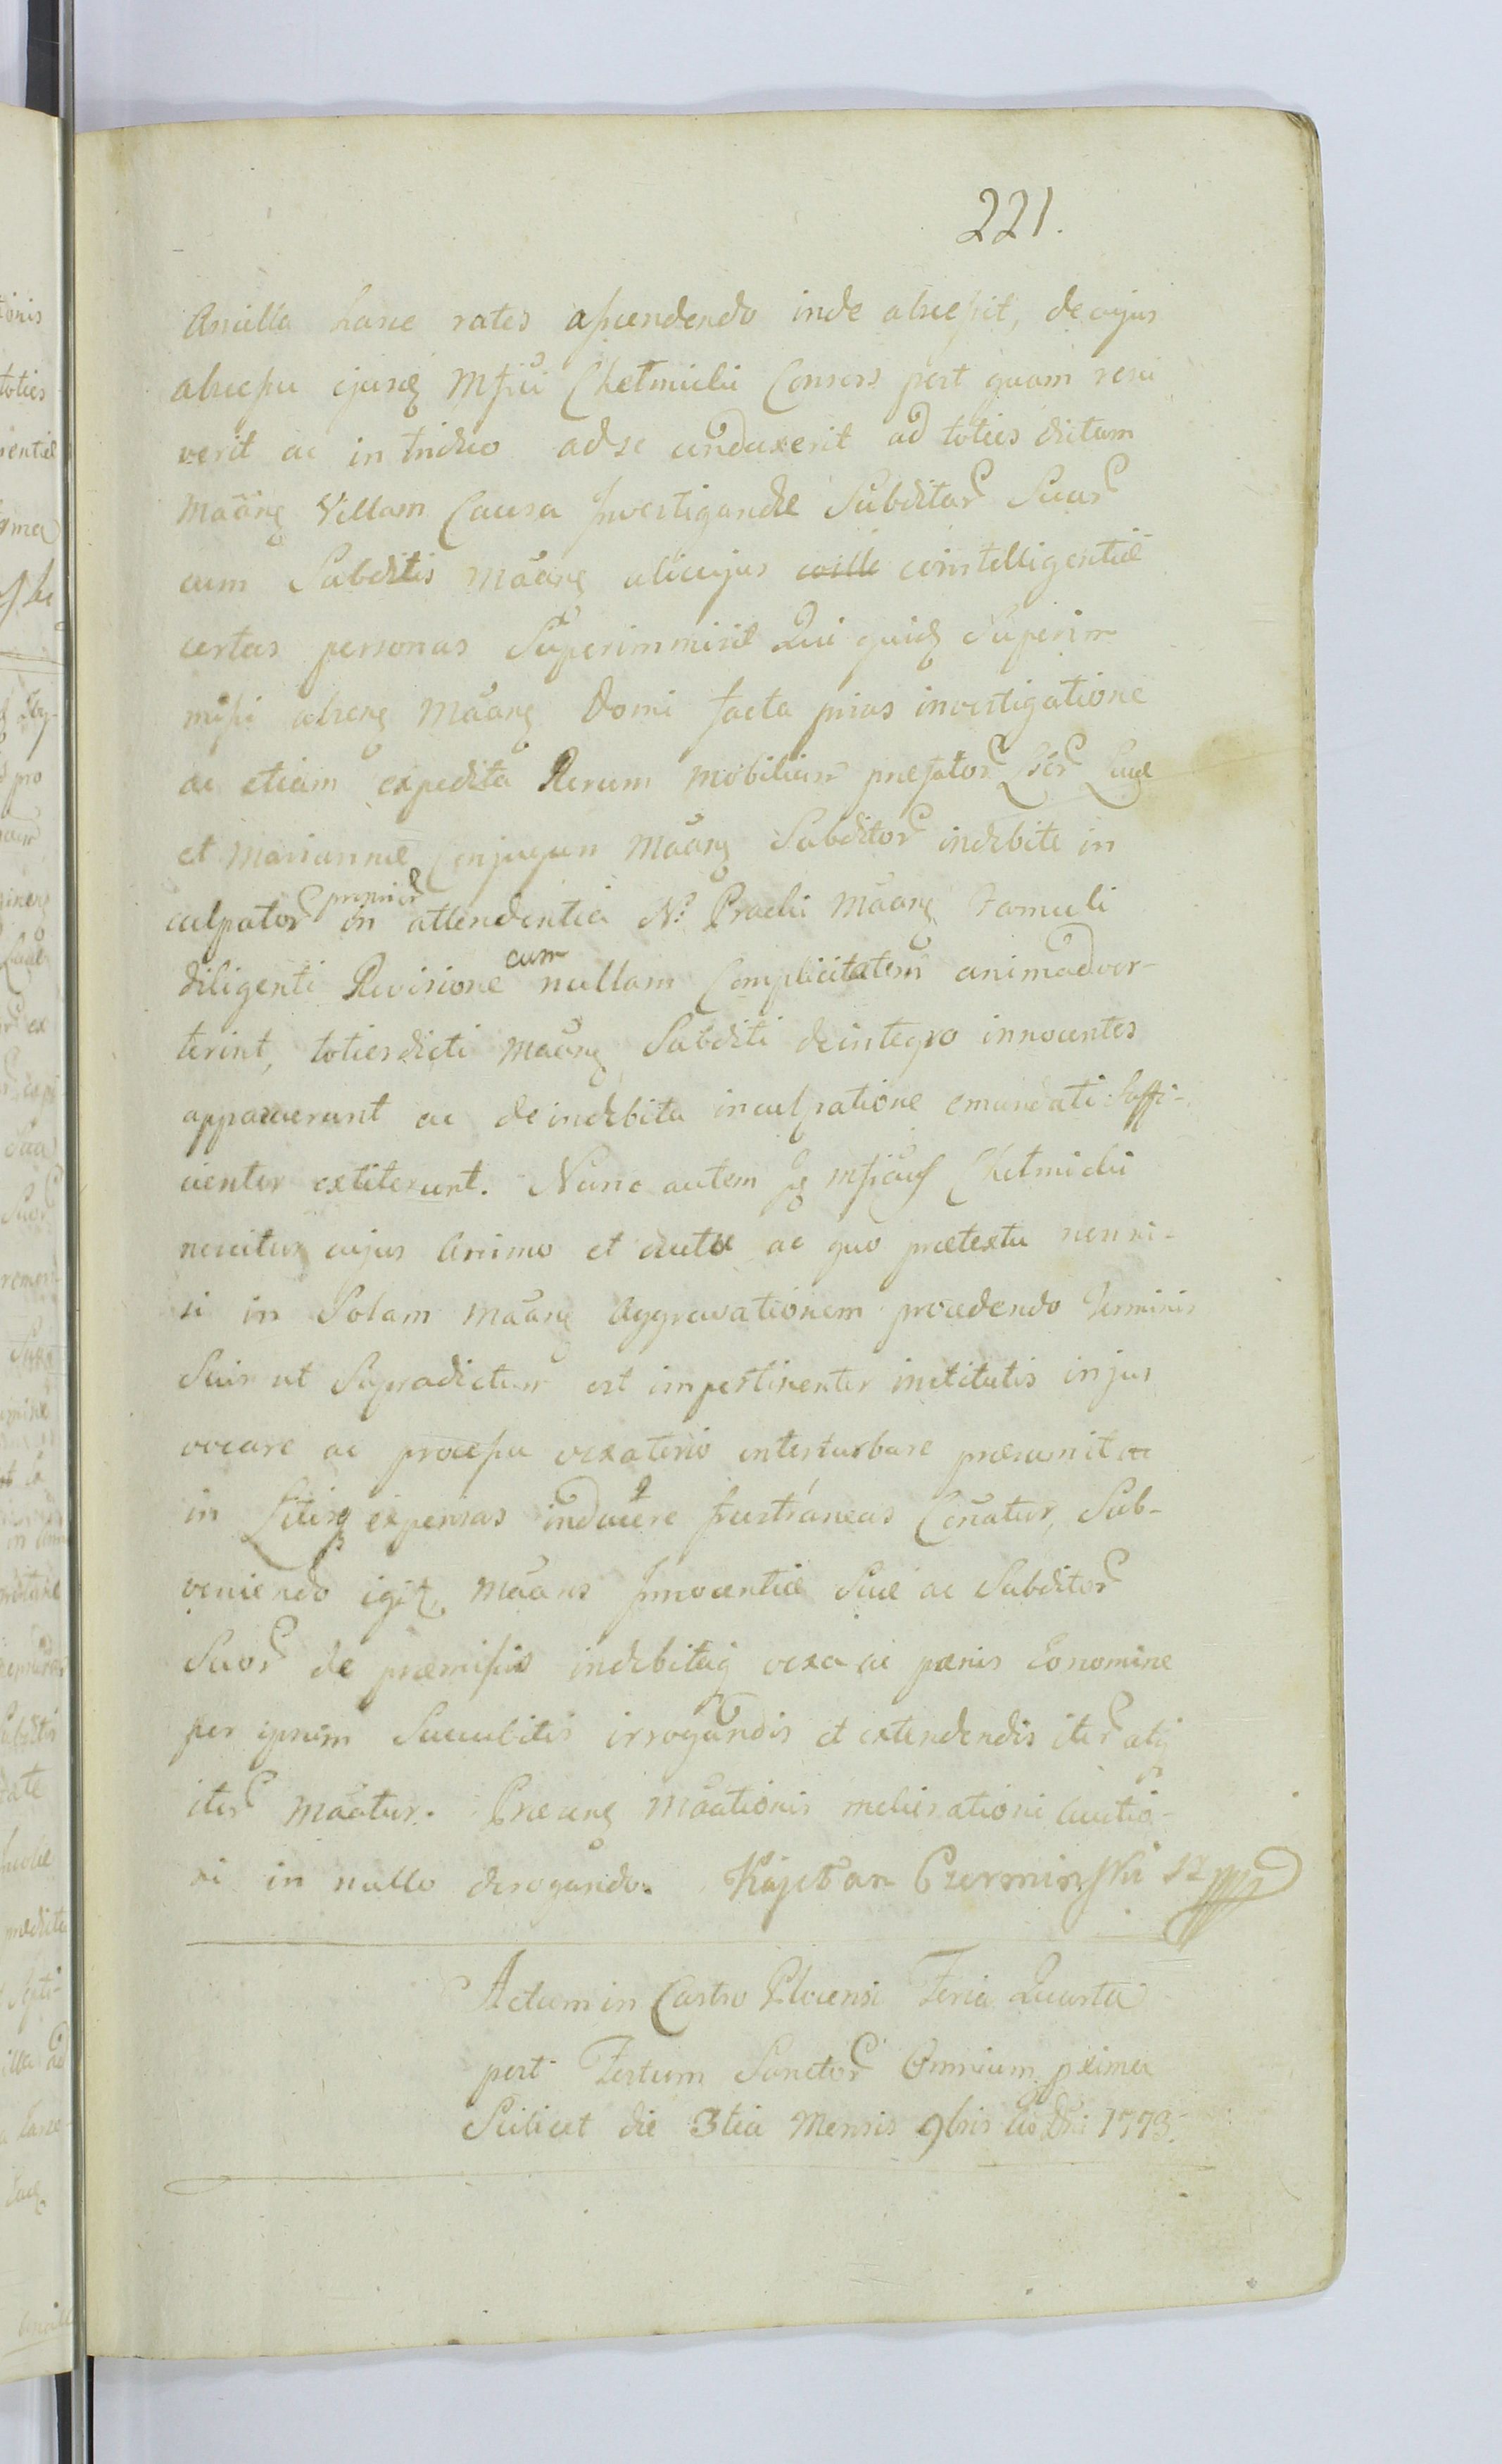 221.
Ancilla hanc rates ascendendo inde abscessit, de cujus
abscessu ejusq Mfici Chełmicki Consors post quam resci
verit ac in triduo ad se conduxerit ad toties dictam
Mãang Villam Causa Investigandæ Subditar Suar
cum Subditis Mãang alicujus cointelligentiæ
certas personas Superimmisit Qui quidq Superim
missi absenq Mãang Domi facta prius investigatione
ac etiam expedita Rerum mobilium præfator Lucæ
et Mariannæ Conjugum Mãang Subditor indebite in
culpator præmissor in attendentia Nₒ Pracki Mãang Famuli
diligenti Revisione cum nullam Complicitatem animadver-
terint, toties dicti Mãang Subditi de integro innocentes
apparuerunt ac de indebita inculpatione emundati Suffi-
cienter extiterunt. Nunc autem Mficus Chełmicki
nescitur cujus Animo et ductu ac quo prætextu non ni-
si in Solam Mãang Aggravationem procedendo Terminis
Suis ut Supradictum est impertinenter institutis in jus
vocare ac processu vexatorio interturbare præsumit ac
in Litisq expensas inducere frustraneas Conatur, Sub-
veniendo igitr Mãans Innocentiæ Suæ ac Subditor
Suor de præmissis indebitaq vexa ac pænis Eo nomine
per ipsum Succubitis irrogandis et extendendis iter atq
iter Mãatur. Præsenq Mãationis meliorationi Auctio-
ni in nullo derogando. Kajetan Czerminski
Actum in Castro Plocensi Feria Quarta
post Festum Sanctor Omnium proxima
Scilicet die 3tia Mensis 9bris Ao Dni 1773.